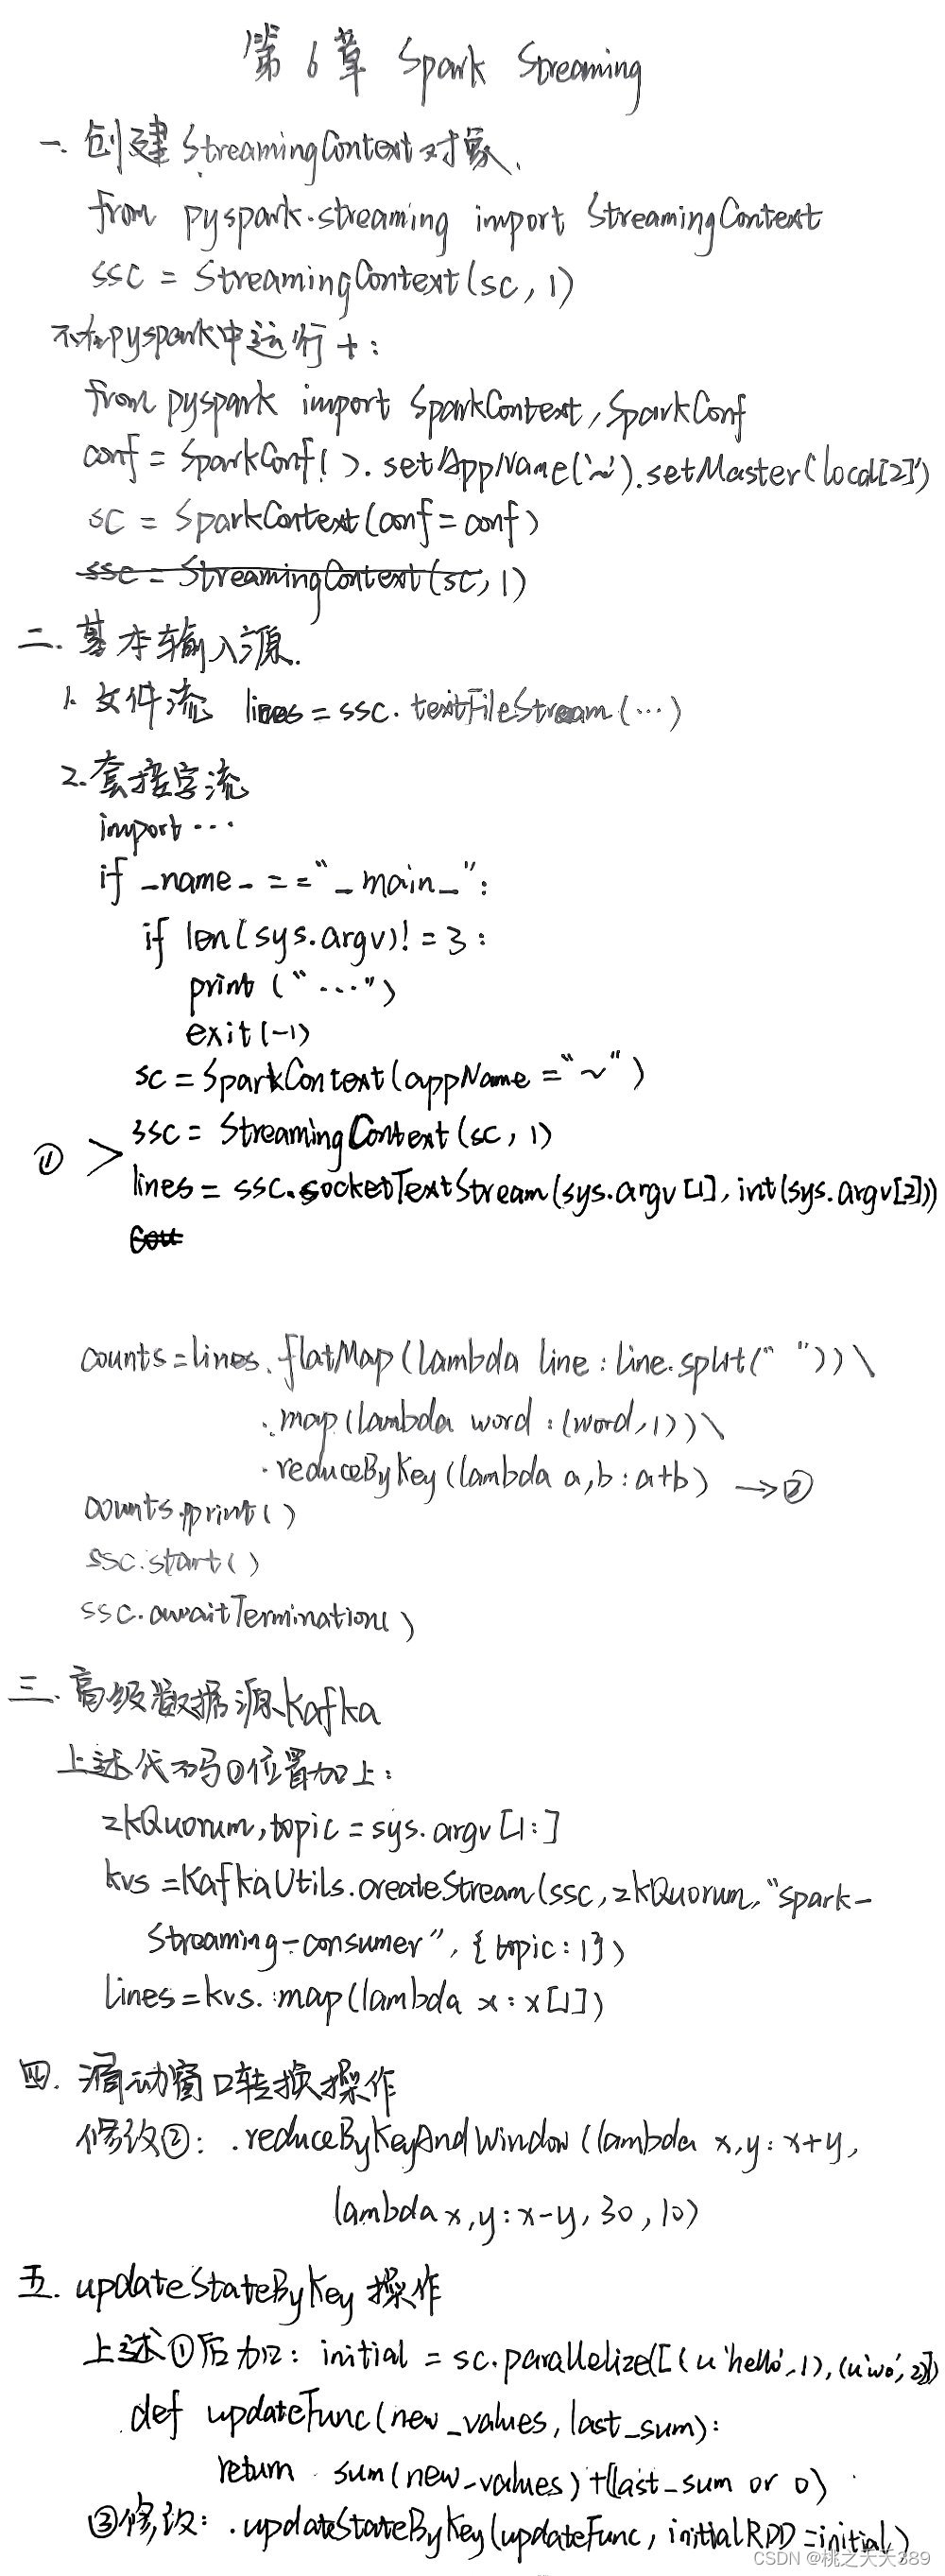 第6章 Spark Streaming
一. 创建StreamingContext对象.
from pyspark.streaming import StreamingContext
ssc = StreamingContext(sc, 1)
不在pyspark中运行+:
from pyspark import SparkContext, SparkConf
conf = SparkConf( ). setAppName('~').setMaster('local[2]')
sc = SparkContext(conf=conf)
ssc = StreamingContext(sc, 1)
二. 基本输入源.
1. 文件流 lines = ssc. textFileStream (···)
2. 套接字流
import ···
if _name_ == "_main_":
if len(sys.argv)! = 3 :
print ("···")
exit(-1)
sc = SparkContext(appName = "~")
ssc = StreamingContext (sc, 1)
① >
lines = ssc.socketTextStream(sys.argv[1], int(sys.argv[2]))
cou
counts = lines. flatMap (lambda line : line.split(" ")) \
. map (lambda word : (word, 1)) \
. reduceByKey (lambda a, b : a+b) → ②
counts.pprint( )
ssc.start( )
ssc.awaitTermination( )
三. 高级数据源Kafka
上述代码①位置加上:
zkQuorum, topic = sys. argv [1:]
kvs = KafkaUtils.createStream(ssc, zkQuorum, "spark-
streaming-consumer", {topic: 1})
lines = kvs. map(lambda x : x[1])
四. 滑动窗口转换操作
修改②: .reduceByKeyAndWindow (lambda x, y: x+y,
lambda x, y: x-y, 30, 10)
五. updateStateByKey 操作
上述①后加: initial = sc.parallelize([(u'hello', 1), (u'wo', 2)])
def updateFunc(new_values, last_sum):
return sum(new_values) + (last_sum or 0)
③修改: .updateStateByKey(updateFunc, initialRDD=initial)
CSDN @桃之夭夭389